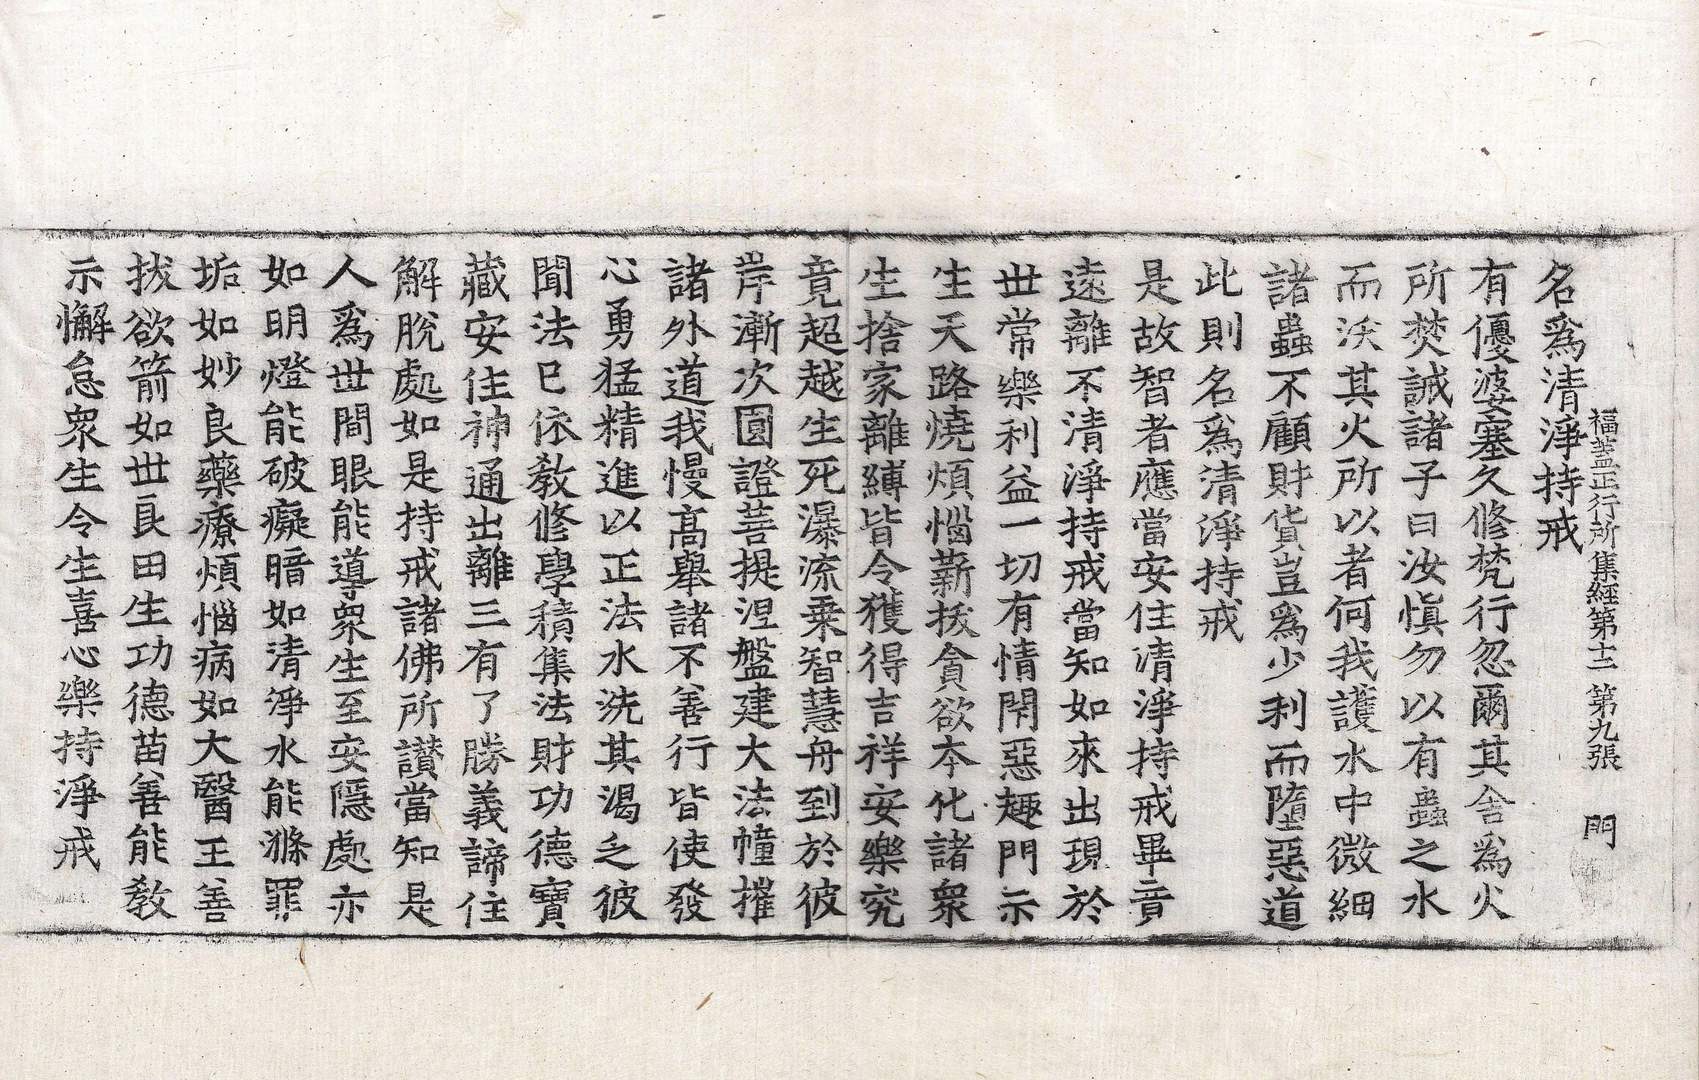 福蓋正行所集經第十二 第九張 門
名爲清淨持戒
有優婆塞久修梵行忽爾其舍爲火
所焚誡諸子曰汝愼勿以有蟲之水
而沃其火所以者何我護水中微細
諸蟲不顧財貨豈爲少利而墮惡道
此則名爲清淨持戒
是故智者應當安住清淨持戒畢竟
遠離不清淨持戒當知如來出現於
世常樂利益一切有情閇惡趣門示
生天路燒煩惱薪拔貪欲本化諸衆
生捨家離縛皆令獲得吉祥安樂究
竟超越生死瀑流乗智慧舟到於彼
岸漸次圓證菩提涅盤建大法幢摧
諸外道我慢高舉諸不善行皆使發
心勇猛精進以正法水洗其渴乏彼
聞法已依教修學積集法財功德寶
藏安住神通出離三有了勝義諦住
解脫處如是持戒諸佛所讃當知是
人爲世間眼能導衆生至安隱處亦
如明燈能破癡暗如清淨水能滌罪
垢如妙良藥療煩惱病如大醫王善
拔欲箭如世良田生功德苗善能教
示懈怠衆生令生喜心樂持淨戒